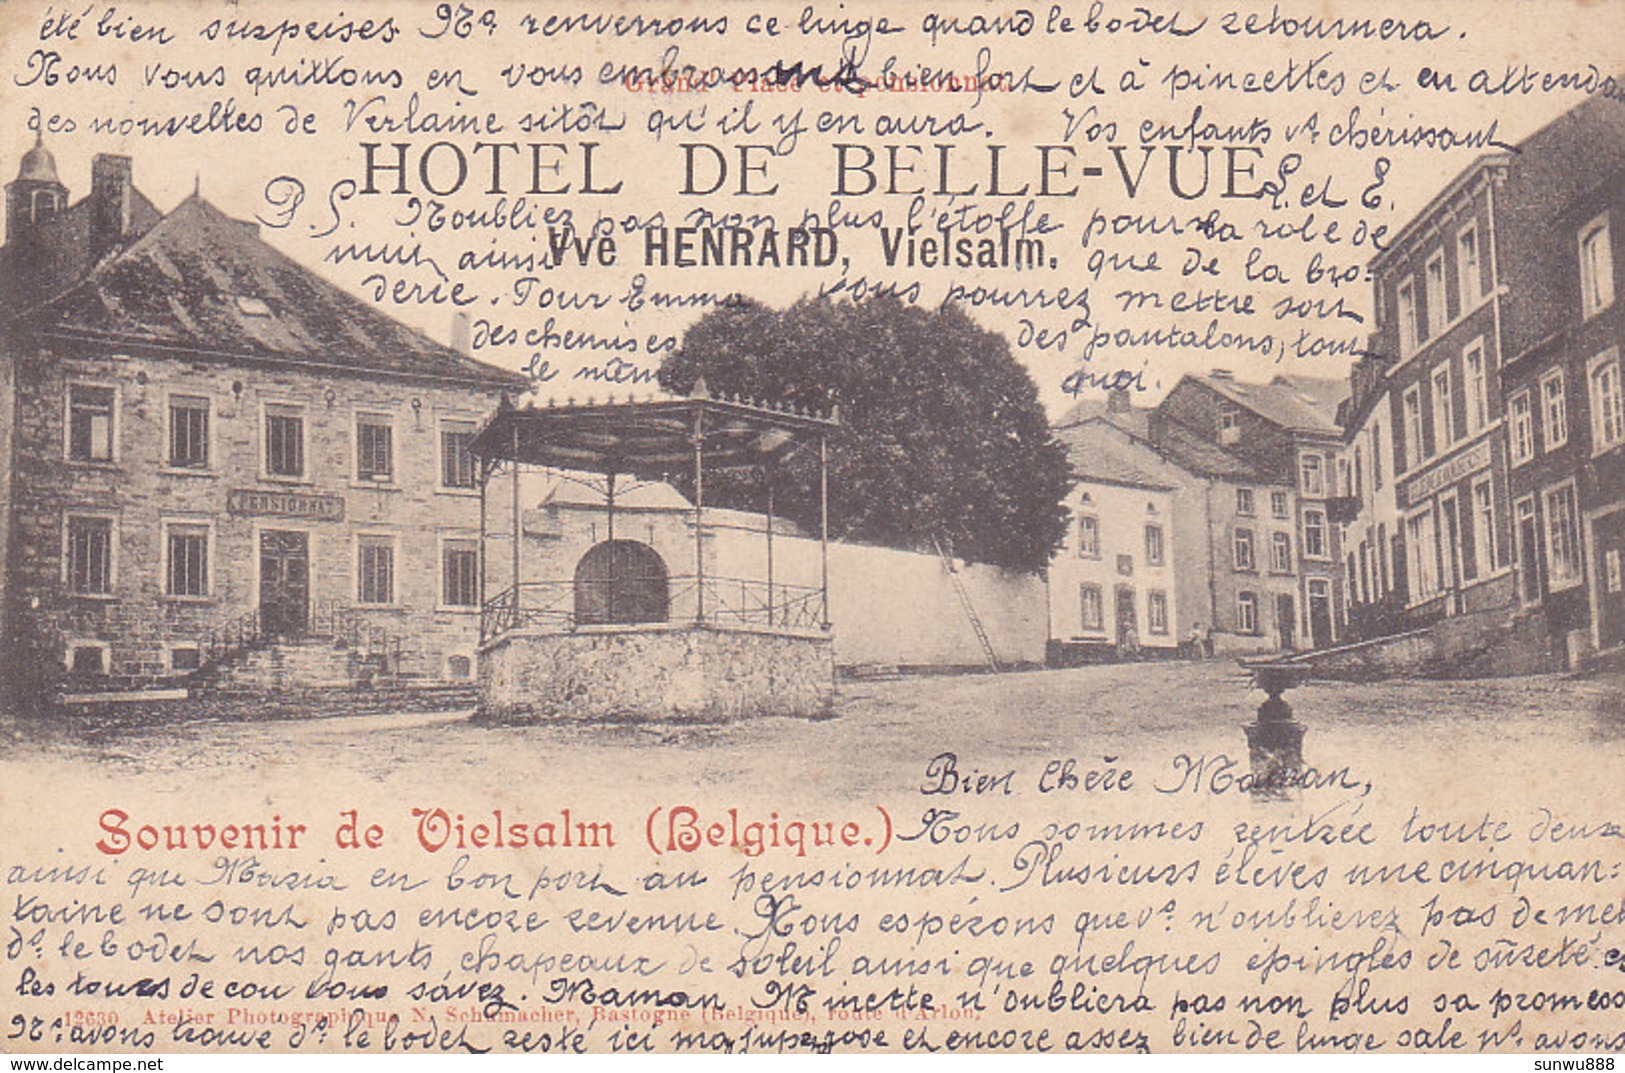 été bien surprises. Ns. renverrons ce linge quand le bodet retournera.
Nous vous quittons en vous embrassant bien fort et à pincettes et en attendant
Grand' Place et pensionnat
des nouvelles de Verlaine sitôt qu'il y en aura. Vos enfants vs. chérissant
HOTEL DE BELLE-VUE
L. et E.
P. S. Noubliez pas non plus l'étoffe pour la role de
Vve HENRARD, Vielsalm.
nuit ainsi que de la bro-
derie. Pour Emma vous pourrez mettre soit
des chemises des pantalons, tout
le même quoi.
PENSIONNAT
Bien Chère Maman,
Souvenir de Vielsalm (Belgique.)
Nous sommes rentrée toute deux
ainsi que Maria en bon port au pensionnat. Plusieurs élèves une cinquan-
taine ne sont pas encore revenue. Nous espérons que vs. n'oublierez pas de met
ds. le bodet nos gants, chapeaux de soleil ainsi que quelques épingles de sûreté. et
les tours de cou vous savez. Maman Minette n'oubliera pas non plus sa promess
12630 Atelier Photographique N. Schumacher, Bastogne (Belgique), route d'Arlon.
Ns. avons trouvé ds. le bodet resté ici ma jupe rose et encore assez bien de linge sale ns. avons
sunwu888